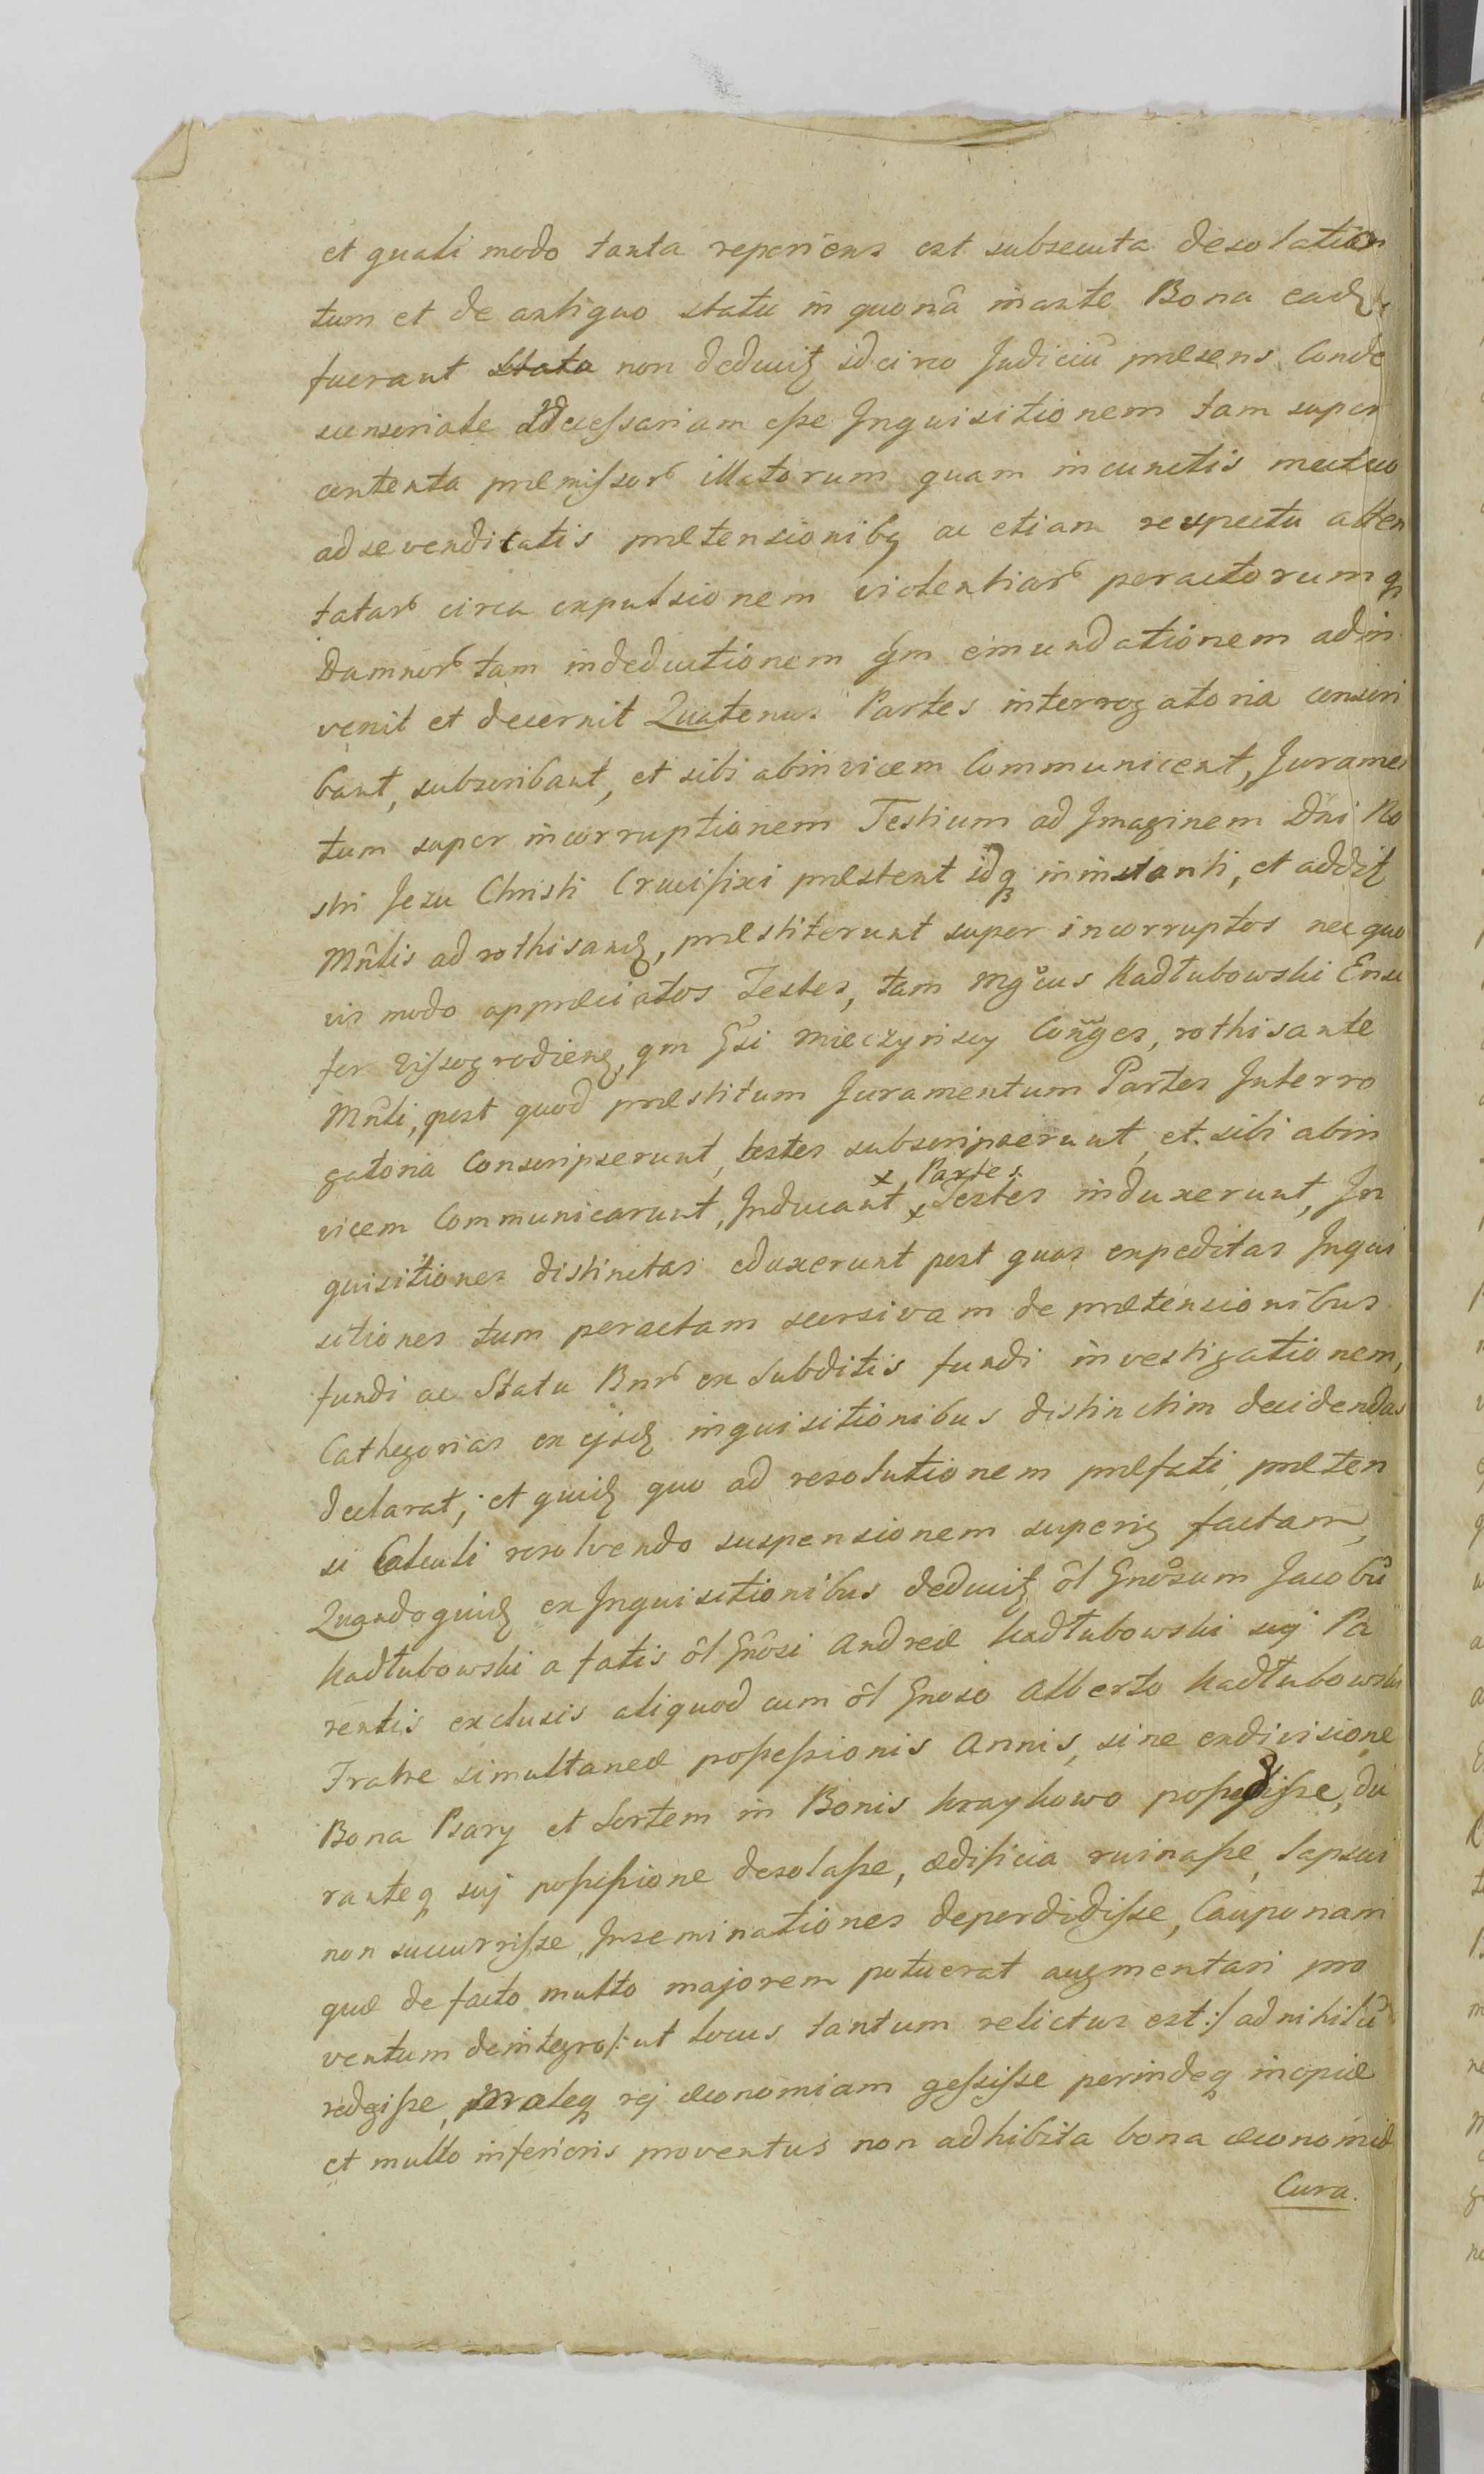 et quali modo tanta reperiens est subsecuta desolation
tum et de antiquo statu in quonâ inante Bona eadȝ
fuerant stata non deducitȝ idcirco Judiciũ præsens Conde
scensoriale Necessariam eſse Inquisitionem tam super
contenta præmiſsorͬ illatorum quam in cunctis mutuo
ad se venditatis prætensionibȝ ac etiam respectu atten
tatarͬ circa expulsionem violentiarͬ peractorumqȝ
Damnorͬ tam in deductionem qm̃ emundationem adin
venit et decernit Quatenus Partes interrogatoria conscri
bant, subscribant, et sibi abinvicem Communicent, Juramen
tum super incorruptionem Testium ad Imaginem Dñi No
stri Jesu Christi Crucifixi præstent idqȝ in instanti, et additȝ
Mñlis ad rothisandȝ, præstiterunt super incorruptos nec quo
vis modo appræciatos Testes, tam Mgcus Kadłubowski Ense
fer Viſsogrodienȝ qm Gsi Mieczyńscy Conges, rothisante
Mñli, post quod præstitum Juramentum Partes Interro
gatoria Conscripserunt, testes subscripserunt, et sibi abin
x Partes
vicem Communicarunt, Inducant x Testes induxerunt, In
quisitiones distinctas eduxerunt post quas expeditas Inqui
sitiones tum peractam scorsivam de prætensionibus
fundi ac Statu Bnrͬ ex subditis fundi investigationem,
Cathegorias ex ejsdȝ inquisitionibus distinctim decidendas
declarat, et quidȝ quo ad resolutionem præfati præten
si Calculi resolvendo suspensionem superiȝ factam,
Quandoquidȝ ex Inquisitionibus deducitȝ ôl Gnosum Jacobũ
Kadłubowski a fatis ôl Gnôsi Andreæ Kadłubowski suj Pa
rentis exclusis aliquod cum ôl Gnoso Alberto Kadłubowski
Fratre simultaneæ poſseſsionis Annis, sine exdivisione
Bona Psary et Sortem in Bonis Kraykowo poſsediſse, du
ranteq suj poſseſsione desolaſse, ædificia ruinaſse, lapsui
non succurriſse, Inseminationes deperdidiſse, Cauponam
quæ de facto multo majorem potuerat augmentari pro
ventum de integro /: ut locus tantum relictus est :/ ad nihilũ
redgiſse, maleq rej œconomiam geſsiſse perindeq inopiæ
et multo inferioris proventus non adhibita bona œconomiæ
Cura.